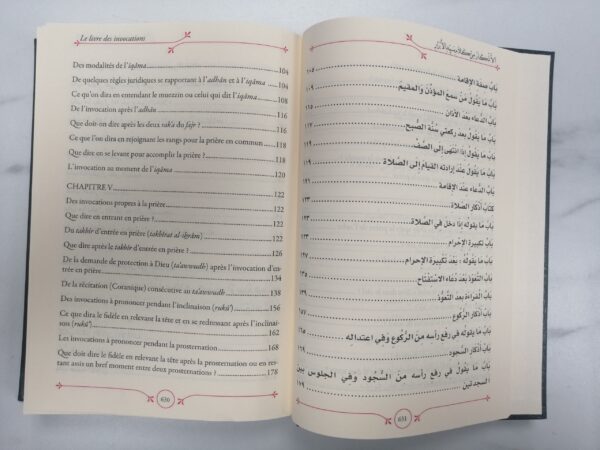 Le livre des invocations
Des modalités de l'iqâma ........ 104
De quelques règles juridiques se rapportant à l'adhân et à l'iqâma .... 104
Ce qu'on dira en entendant le muezzin ou celui qui dit l'iqâma ........ 108
De l'invocation après l'adhân ........ 116
Que doit-on dire après les deux rak'a du fajr ? ........ 116
Ce que l'on dira en rejoignant les rangs pour la prière en commun ..... 118
Que dire en se levant pour accomplir la prière ? ........ 118
L'invocation au moment de l'iqâma ........ 120
CHAPITRE V ........ 122
Des invocations propres à la prière ........ 122
Que dire en entrant en prière ? ........ 122
Du takbîr d'entrée en prière (takbîrat al-ihrâm) ........ 122
Que dire après le takbîr d'entrée en prière ? ........ 126
De la demande de protection à Dieu (ta'awwudh) après l'invocation d'en-
trée en prière ........ 134
De la récitation (Coranique) consécutive au ta'awwudh ........ 138
Des invocations à prononcer pendant l'inclinaison (rukû') ........ 156
Ce que dira le fidèle en relevant la tête et en se redressant après l'inclinai-
son (rukû') ........ 162
Les invocations à prononcer pendant la prosternation ........ 168
Que doit dire le fidèle en relevant la tête après la prosternation ou en res-
tant assis un bref moment entre deux prosternations ? ........ 178
630
باب صفة الإقامة ........ ١٠٥
باب ما يقول من سمع المؤذن والمقيم ........ ١٠٩
باب الدعاء بعد الأذان ........ ١١٧
باب ما يقول بعد ركعتي سنة الصبح ........ ١١٧
باب ما يقول إذا انتهى إلى الصف ........ ١١٩
باب ما يقول عند إرادته القيام إلى الصلاة ........ ١١٩
باب الدعاء عند الإقامة ........ ١٢١
كتاب أذكار الصلاة ........ ١٢٣
باب ما يقوله إذا دخل في الصلاة ........ ١٢٣
باب تكبيرة الإحرام ........ ١٢٣
باب ما يقوله بعد تكبيرة الإحرام ........ ١٢٧
باب التعوذ بعد دعاء الاستفتاح ........ ١٣٥
باب القراءة بعد التعوذ
باب أذكار الركوع
باب ما يقوله في رفع رأسه من الركوع وفي اعتداله
باب أذكار السجود
باب ما يقول في رفع رأسه من السجود وفي الجلوس بين
السجدتين ........ ١٧٩
631